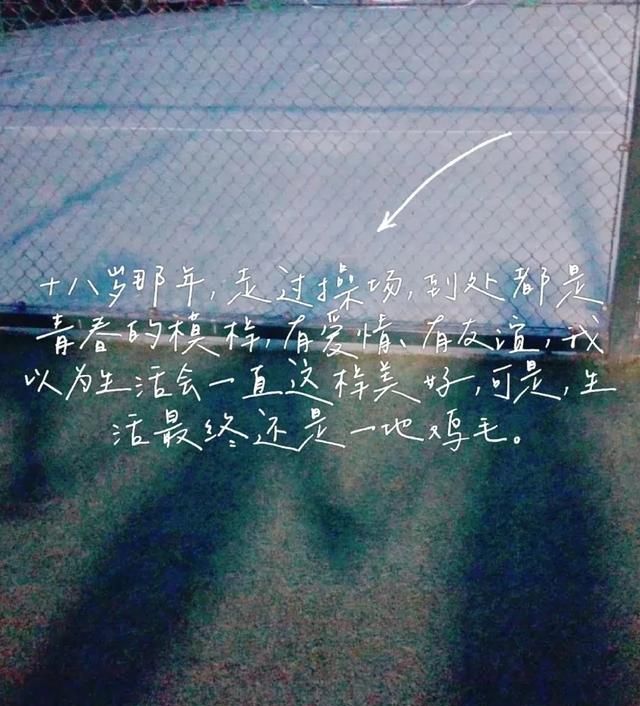 十八岁那年,走过操场,到处都是
青春的模样,有爱情、有友谊,我
以为生活会一直这样美好,可是,生
活最终还是一地鸡毛。